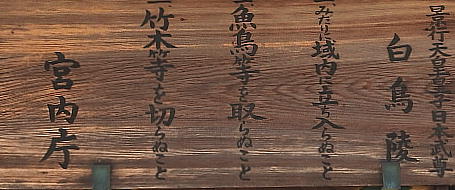 景行天皇皇子日本武尊
白鳥陵
一、みだりに域内に立ち入らぬこと
一、魚鳥等を取らぬこと
一、竹木等を切らぬこと
宮内庁